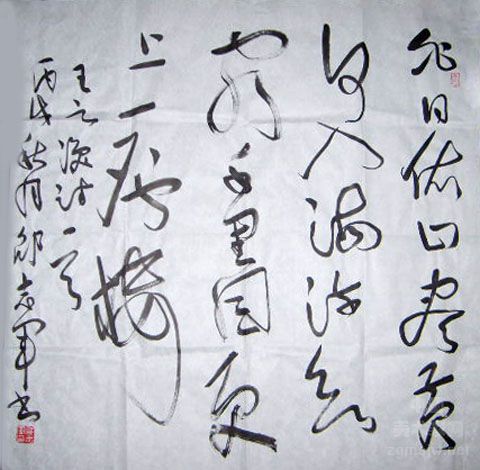 白日依山尽黄
河入海流欲
穷千里目更
上一层楼
王之涣诗一首
丙戌秋月志军书